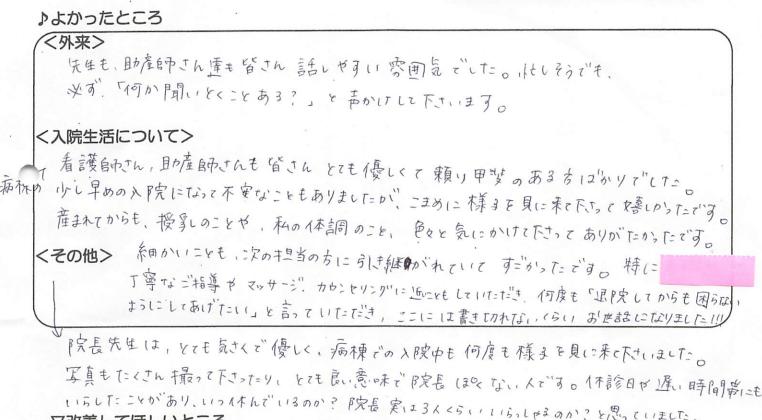 ♪よかったところ
<外来>
先生も、助産師さん達も皆さん 話しやすい 雰囲気でした。忙しそうでも、
必ず、「何か聞いとくことある？」と声かけして下さいます。
<入院生活について>
病棟の 看護師さん，助産師さんも皆さん とても優しくて 頼り甲斐のある方ばかりでした。
少し早めの入院になって不安なこともありましたが、こまめに様子を見に来て下さって嬉しかったです。
産まれてからも、授乳のことや、私の体調のこと、色々と気にかけて下さって ありがたかったです。
<その他>
細かいことも、次の担当の方に引き継がれていて すごかったです。特に
丁寧なご指導やマッサージ、カウンセリングに近いこともしていただき、何度も「退院してからも困らない
ようにしてあげたい」と言っていただき、ここには書き切れないくらい お世話になりました!!!
院長先生は，とても気さくで優しく、病棟での入院中も何度も様子を見に来て下さいました。
写真もたくさん撮って下さったり、とても良い意味で院長ぽくない人です。休診日や遅い時間帯にも
いらしたことがあり、いつ休んでいるのか？院長実は3人くらいいらっしゃるのか？と思っていました。
▽改善してほしいところ